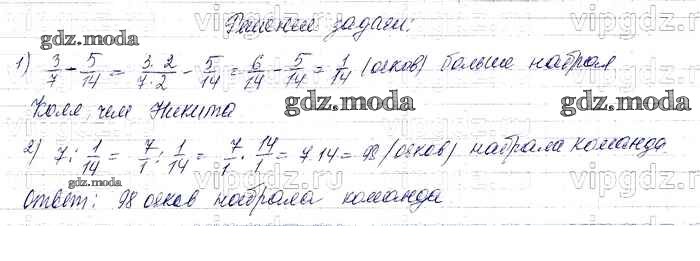 Решение задачи:
gdz.moda
1) 3/7 - 5/14 = 3·2/7·2 - 5/14 = 6/14 - 5/14 = 1/14 (очков) больше набрал
Коля, чем Никита
gdz.moda gdz.moda
2) 7 : 1/14 = 7/1 : 1/14 = 7/1 · 14/1 = 7·14 = 98 (очков) набрала команда
gdz.moda gdz.moda
Ответ: 98 очков набрала команда